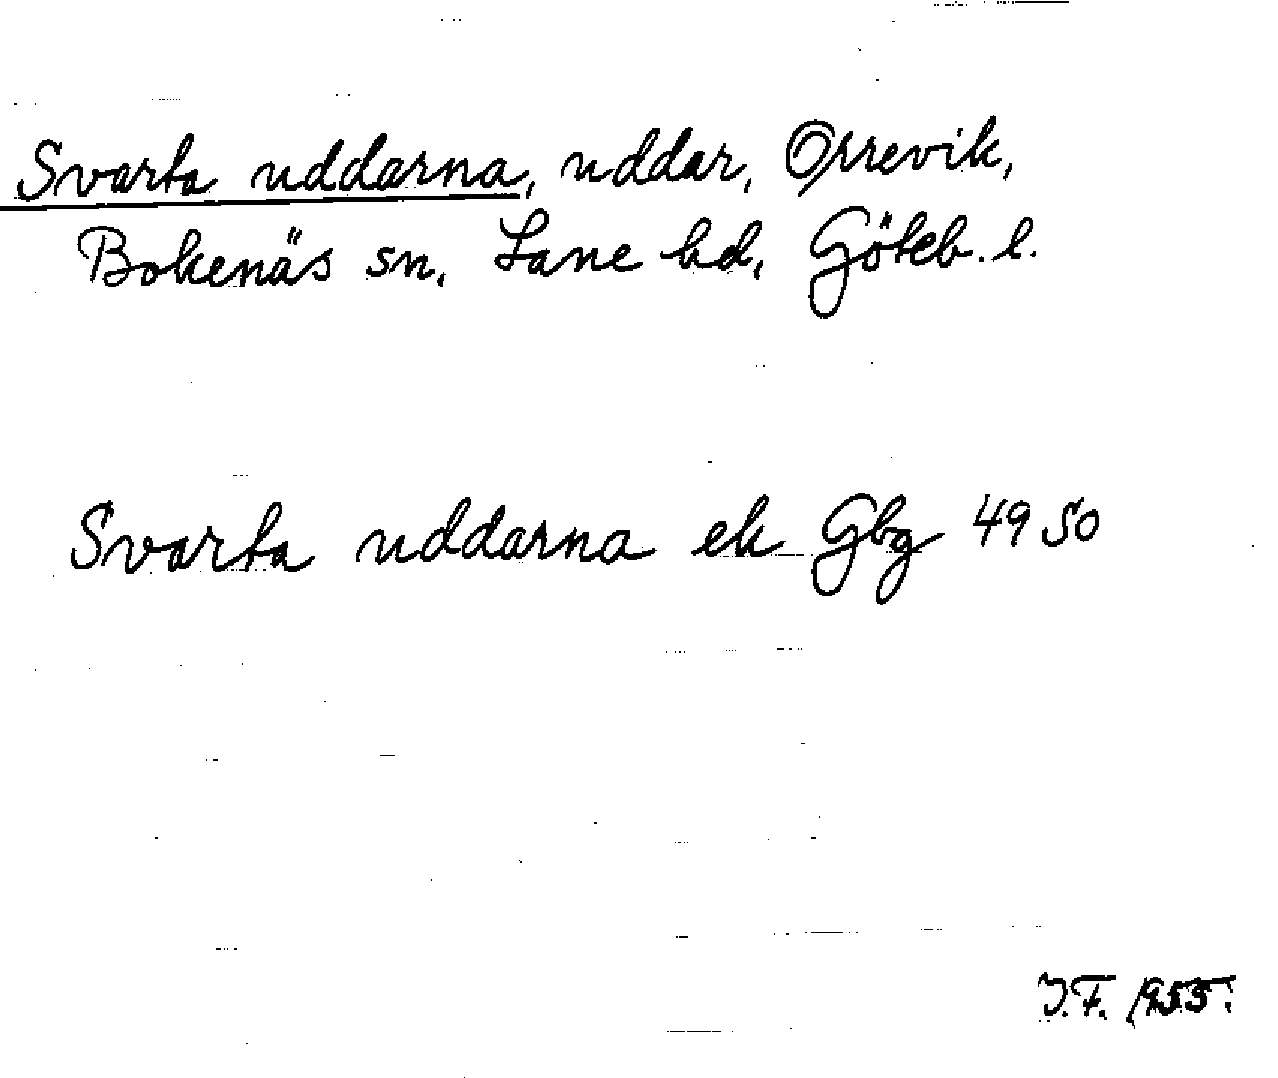 Svarta uddarna, uddar, Orrevik,
Bokenäs sn, Lane hd, Göteb. l.
Svarta uddarna ek Gbg 4950
J.F. 1955.